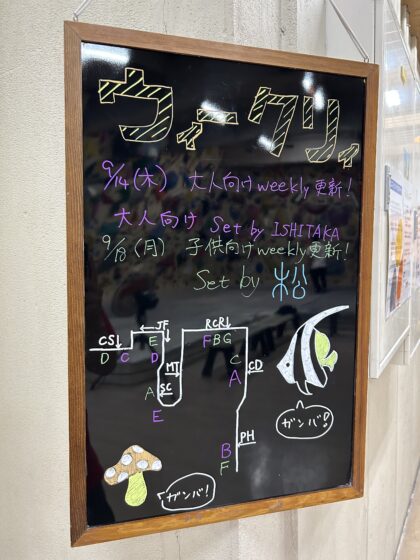 ウィークリィ
9/14(木) 大人向けweekly更新!
大人向け Set by ISHITAKA
9/18(月) 子供向けweekly更新!
Set by 松
CS↓ ←JF↓ RCR↓
D C E F B G
D MT→ C ←CD
A ←SC A
E
←PH
B
F
ガンバ!
ガンバ!